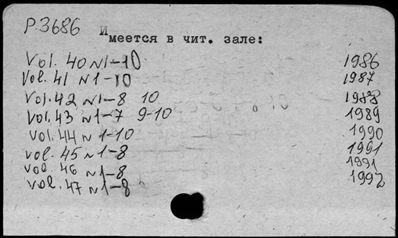 P3686
Имеется в чит. зале:
Vol. 40 N1-10 1986
Vol. 41 N1-10 1987
Vol. 42 N1-8 10 1988
Vol. 43 N1-7 9-10 1989
Vol. 44 N 1-10 1990
vol. 45 N1-8 1991
vol. 46 N1-8 1991
vol. 47 N1-8 1992